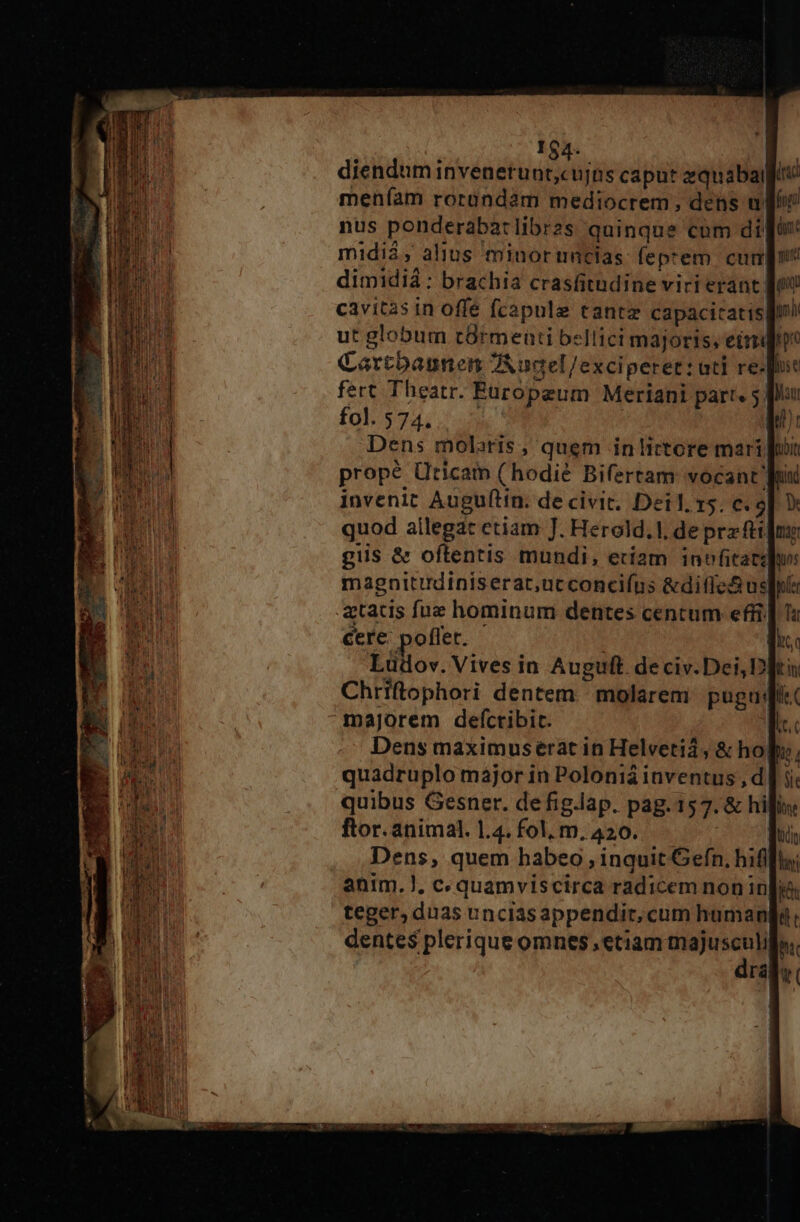 184.
diendum invenerunt, cujus caput æquabat
menſam rotundam mediocrem, dens u
nus ponderabat libras quinque cum di
midiâ, alius minor uncias ſeptem cum
dimidiâ: brachia crasſitudine viri erant
cavitas in oſſe ſcapulæ tantæ capacitatis
ut globum tormenti bellici majoris, eine
Carthaunen Kugel / exciperet: uti re-
fert Theatr. Europæum Meriani part. 5
fol. 574.
Dens molaris, quem in littore mari
propè Uticam (hodiè Bifertam vocant
invenit Auguſtin. de civit. Dei l. 15. c. 9
quod allegat etiam J. Herold. l. de præſti
giis & oſtentis mundi, etiam inuſitatæ
magnitudinis erat, ut concifus & diſſectus
ætatis ſuæ hominum dentes centum effi
cere poſſet.
Ludov. Vives in Auguſt. de civ. Dei, D
Chriſtophori dentem molarem pugno
majorem deſcribit.
Dens maximus erat in Helvetiâ, & ho
quadruplo major in Poloniâ inventus, d
quibus Gesner. de fig. lap. pag. 157. & hi
ſtor. animal. l. 4. fol. m. 420.
Dens, quem habeo, inquit Geſn. hiſt
anim. l. c. quamvis circa radicem non in
teger, duas uncias appendit, cum human
dentes plerique omnes, etiam majusculi
dra